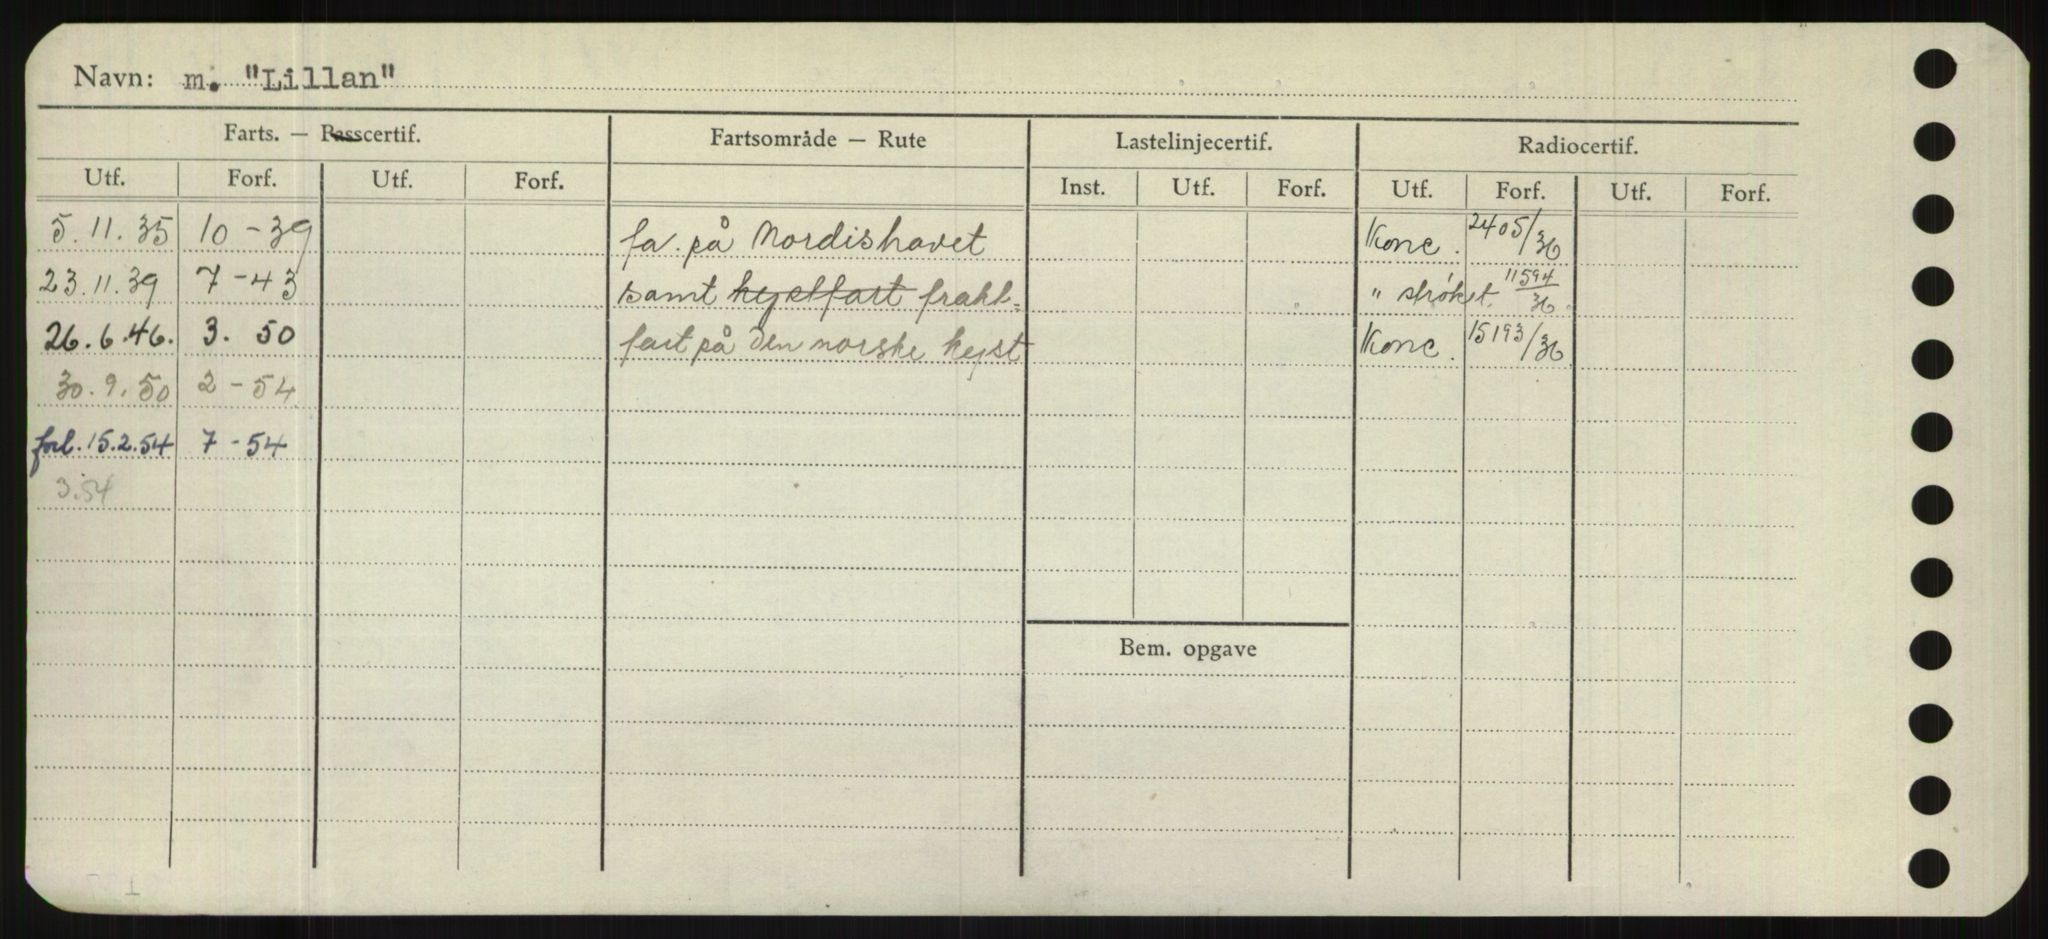 Navn: m. "Lillan"
Farts. — Passcertif. Fartsområde — Rute Lastelinjecertif. Radiocertif.
Utf. Forf. Utf. Forf. Inst. Utf. Forf. Utf. Forf. Utf. Forf.
5.11.35 10-39 fa. på Nordishavet Konc. 2405/36
23.11.39 7-43 samt kystfart frakt= " strøket. 11594/36
26.6.46. 3. 50 fart på den norske kyst Konc. 15193/36
30.9.50 2-54
forl. 15.2.54 7-54
3.54
Bem. opgave